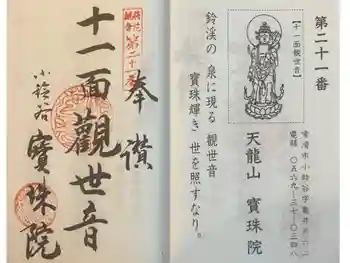 第二十一番
【十一面観世音】
天龍山　寶珠院
電話　〇五六九―三七―〇三四八
鈴渓の　泉に現る　観世音
寶珠輝き　世を照すなり。
奉讃
十一面觀世音
小鈴谷　寶珠院